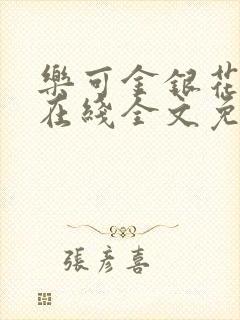 樂可金銀花
在綫全文免
張彥喜